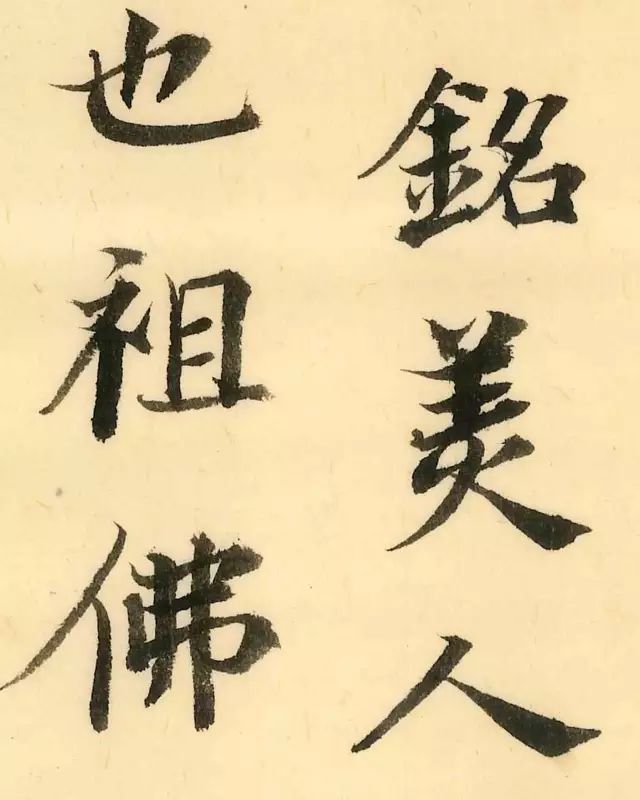 銘美人
也祖佛